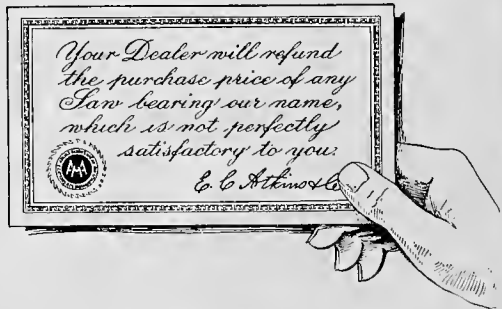 Your Dealer will refund
the purchase price of any
Saw bearing our name,
which is not perfectly
satisfactory to you.
E. C. Atkins & Co
AAA